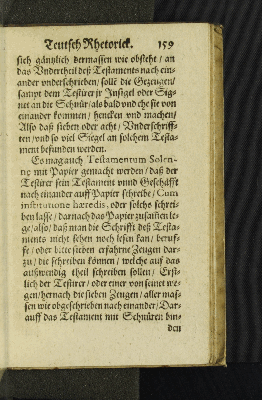 Teutsch Rhetorick. 159
sich gäntzlich dermassen wie obsteht / an
das Vndertheil deß Testaments nach ein-
ander vnderschrieben / solle die Gezeugen /
sampt dem Testirer jr Insigel oder Sig-
net an die Schnür / als bald vnd ehe sie von
einander kommen / hencken vnd machen /
Also daß sieben oder acht / Vnderschriff-
ten / vnd so viel Siegel an solchem Testa-
ment befunden werden.
Es mag auch Testamentum Solen-
ne mit Papier gemacht werden / daß der
Testirer sein Testament vnnd Geschäfft
nach einander auff Papier schreibe / Cum
institutione hæredis, oder solchs schrei-
ben lasse / darnach das Papier zusamen le-
ge / also / daß man die Schrifft deß Testa-
ments nicht sehen noch lesen kan / beruf-
fe / oder bitte sieben erfahrne Zeugen dar-
zu / die schreiben können / welche auff das
außwendig theil schreiben sollen / Erst-
lich der Testirer / oder einer von seinet we-
gen / hernach die sieben Zeugen / aller mas-
sen wie obgeschrieben nach einander / Dar-
auff das Testament mit Schnüren bin-
den